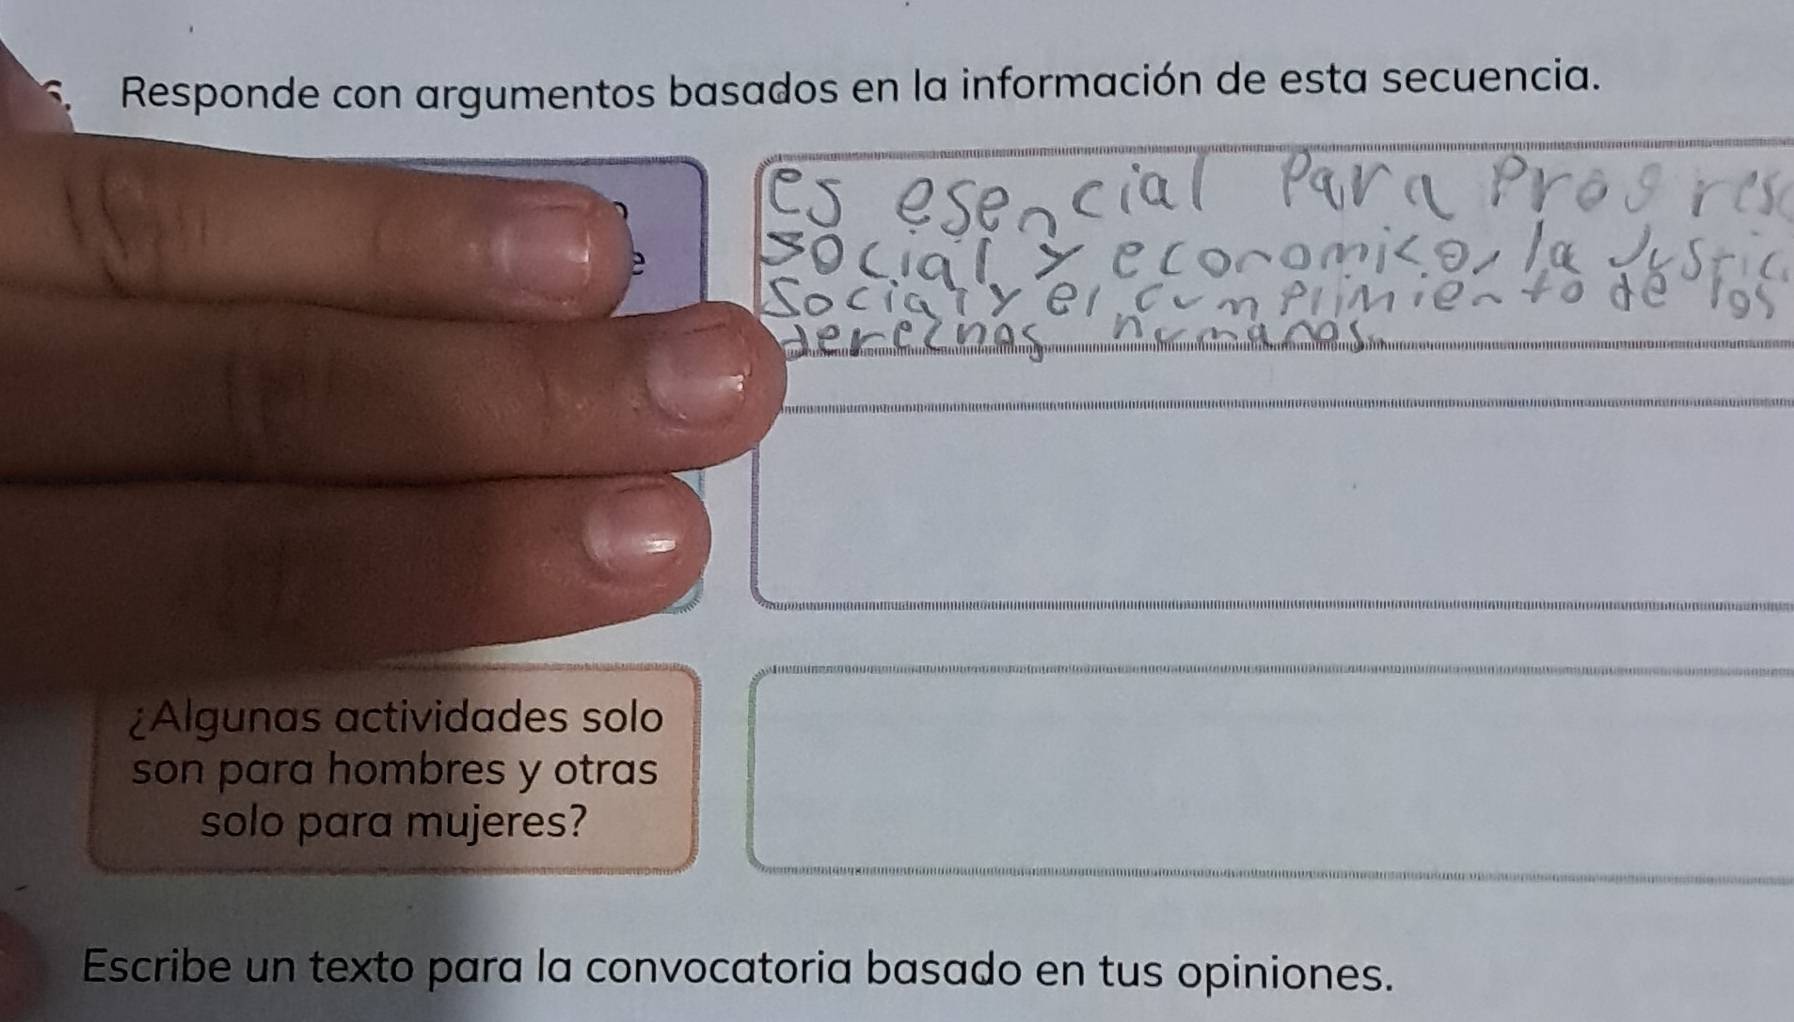 Responde con argumentos basados en la información de esta secuencia.
es esencial Para Progres
social y economico, la Justic
Social y el cumplimiento de los
derechos humanos.
¿Algunas actividades solo
son para hombres y otras
solo para mujeres?
Escribe un texto para la convocatoria basado en tus opiniones.